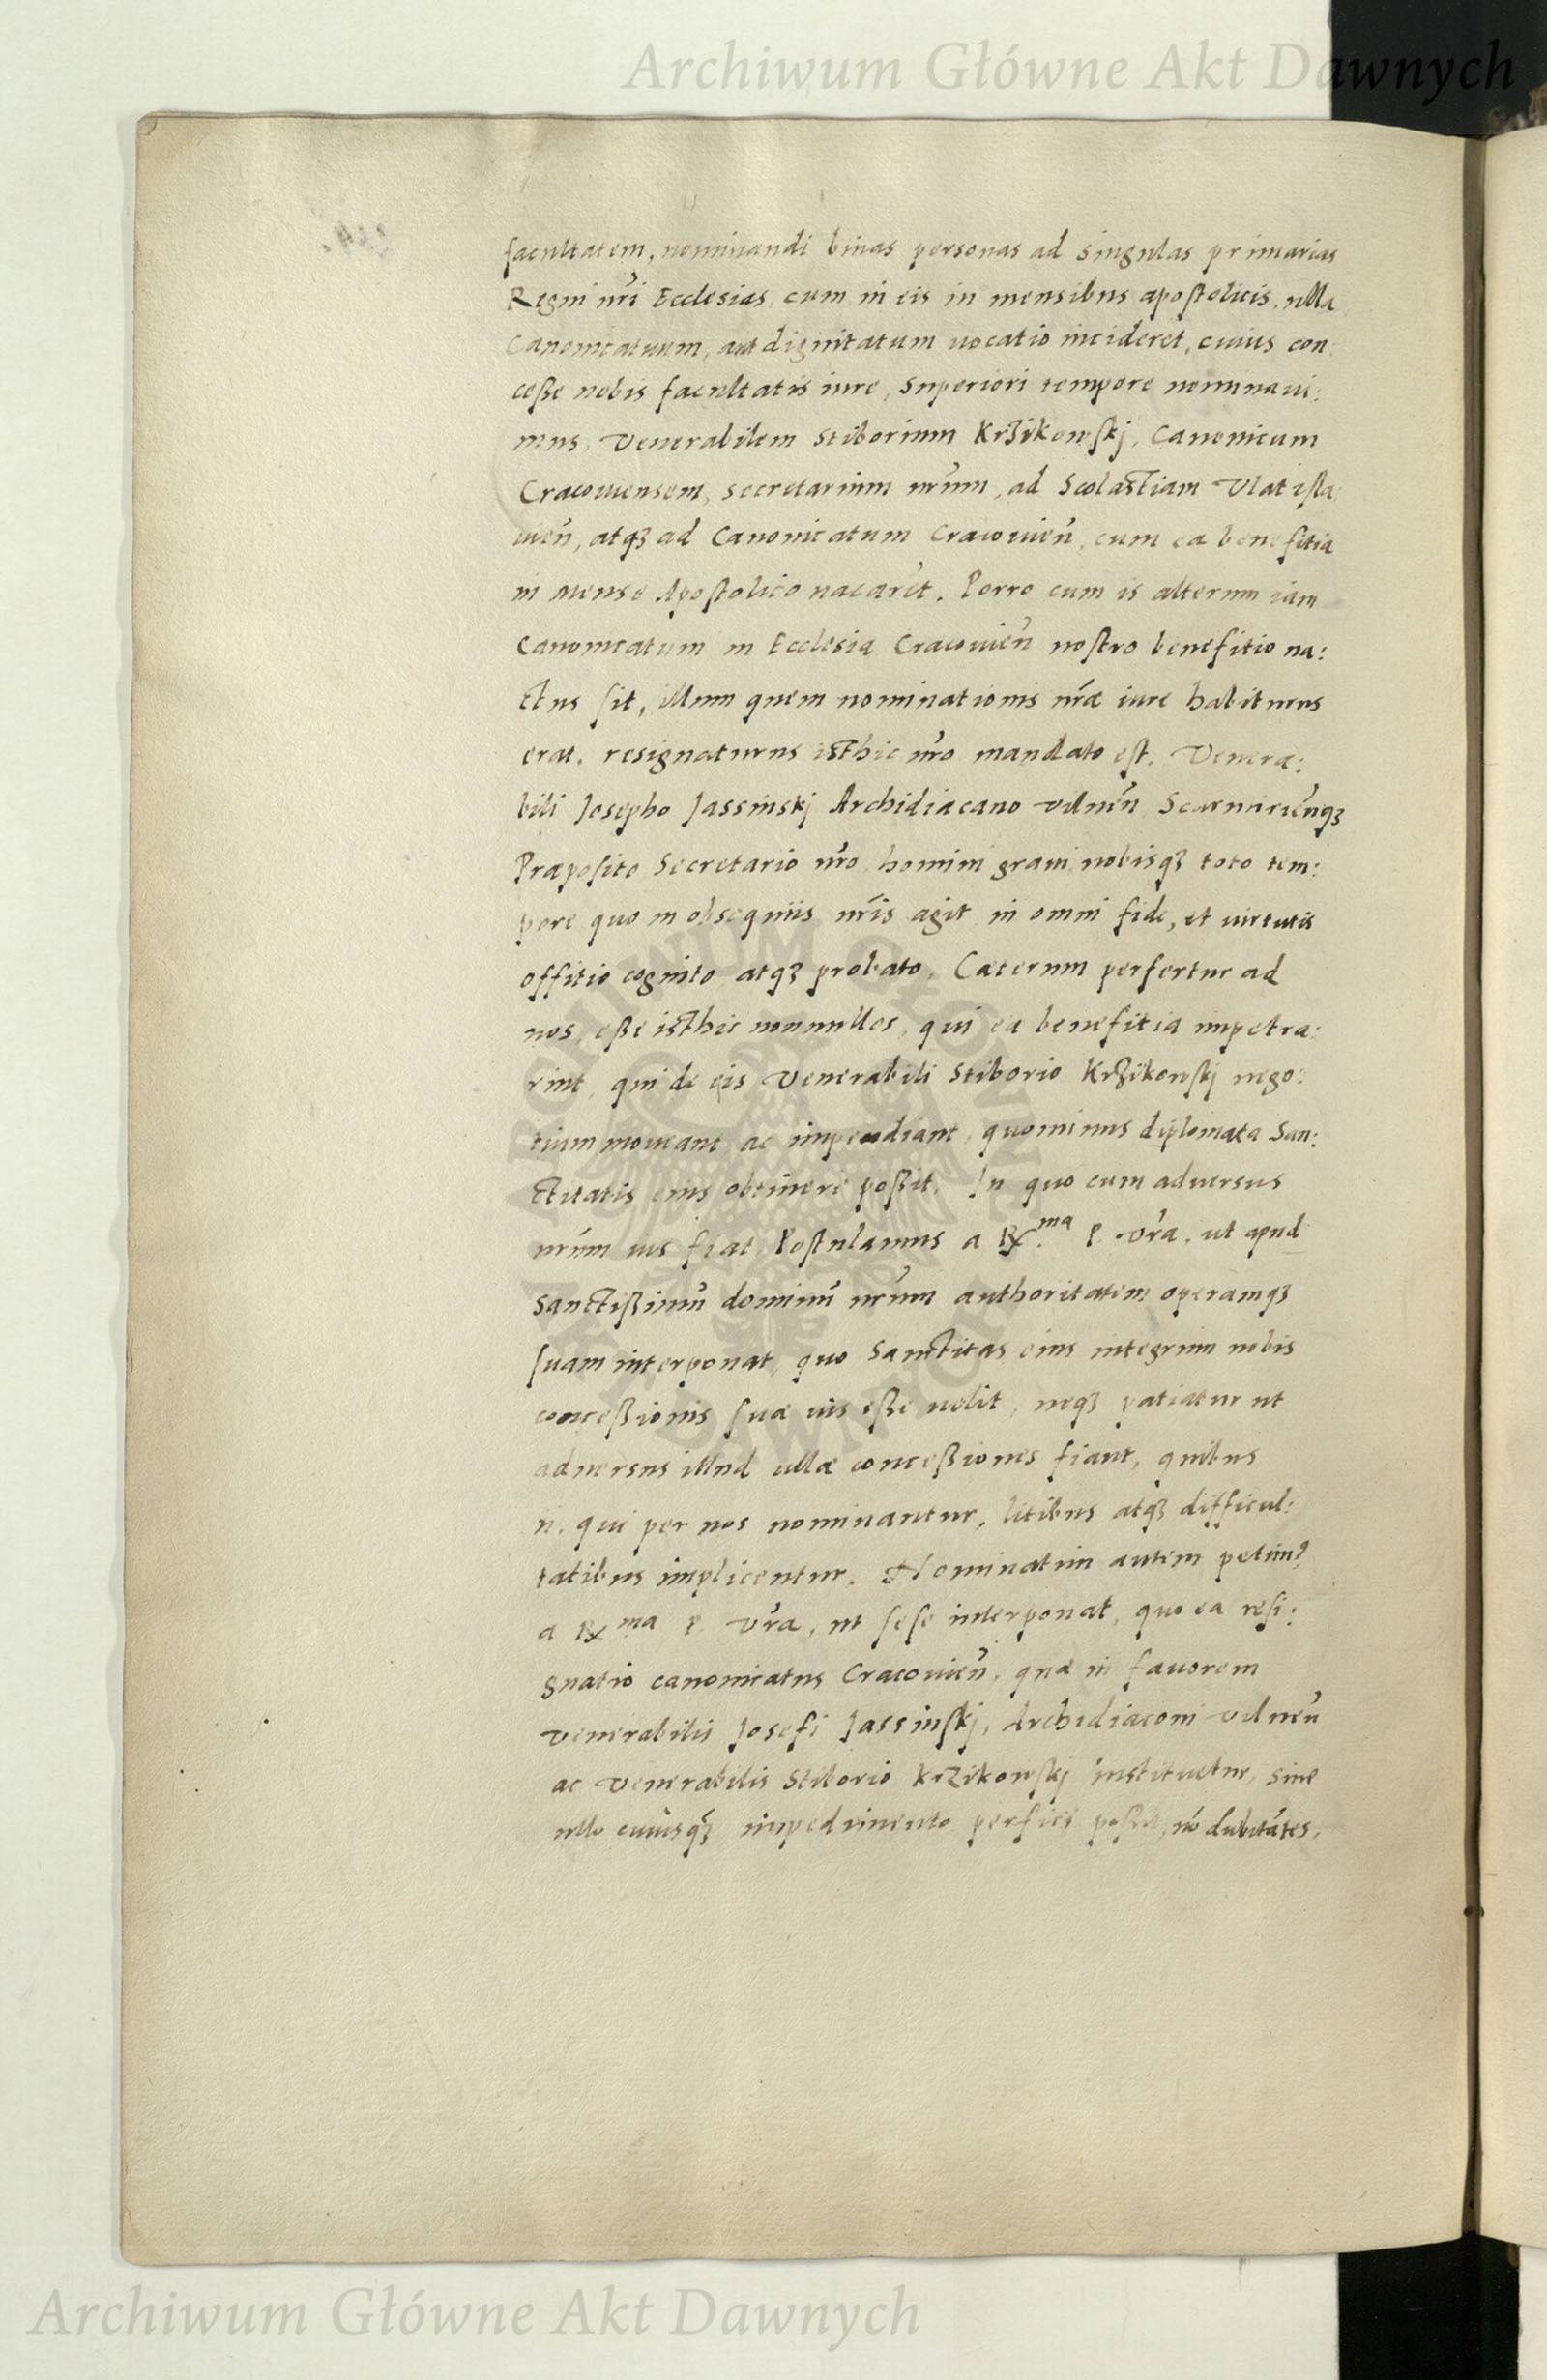 Archiwum Główne Akt Dawnych
facultatem, nominandi binas personas ad singulas primarias
Regni nr̃i Ecclesias, cum in eis in mensibus apostolicis, ulla
Canonicatuum, aut dignitatum uocatio incideret, cuius con:
cesse nobis facultatis iure, superiori tempore nominaui:
mus, Venerabilem Stiborium Krzikowskj, Canonicum
Cracouiensem, secretarium nr̃um, ad Scolastiam Vlatisla:
uien̄, atqꝫ ad Canonicatum Cracouien̄, cum ea benefitia
in mense Apostolico uacarẽt. Porro cum is alterum iam
Canonicatum in Ecclesia Cracouien̄ nostro benefitio na:
ctus sit, illum quem nominationis nr̃æ iure habiturus
erat, resignaturus isthic nr̃o mandato est. Venera:
bili Josepho Jassinskj Archidiacano Vilnen̄
Præposito Secretario nr̃o, homini graui, nobisqꝫ toto tem:
pore quo in obsequiis nr̃is agit in omni fide, et uirtutis
offitio cognito atqꝫ probato. Cæterum perfertur ad
nos, esse isthic nonnullos, qui ea benefitia impetra:
rint, qui de eis Venerabili Stiborio Krzikowskj nego:
tium moueant ac impendiant, quominus diplomata San:
ctitatis eius obtineri possit. In quo cum aduersus
nr̃um ius fiat, Postulamus a R.ma P. Vr̃a, ut apud
Sanctissimũ dominũ nr̃um authoritatem operamqꝫ
suam interponat, quo Sanctitas eius integrum nobis
concessionis suæ ius esse uelit, neqꝫ patiatur ut
aduersus illud ullæ concessiones fiant, quibus
ii, qui per nos nominantur, litibus atqꝫ difficul:
tatibus implicentur. Nominatim autem petim9
a Rma P. Vr̃a, ut sese interponat, quo ea resi:
gnatio canonicatus Cracouien̄, quæ in fauorem
Venerabilis Josefi Jassinskj, Archidiaconi Vilnen̄
ac Venerabilis Stiborio Krzikowskj instituetur, sine
ullo cuiusqꝫ impedimento perfici possit, nõ dubitãtes.
Archiwum Główne Akt Dawnych